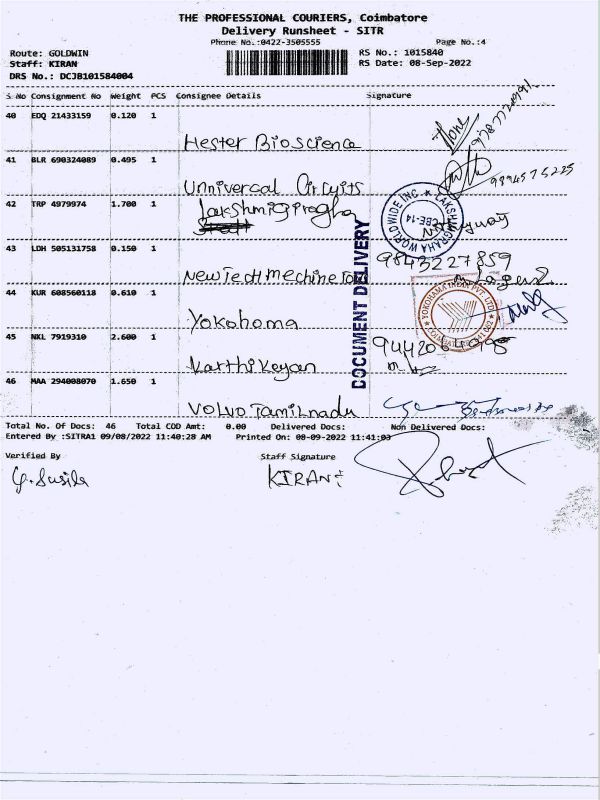 THE PROFESSIONAL COURIERS, Coimbatore
Delivery Runsheet - SITR
Phone No.:0422-3505555
Page No.:4
Route: GOLDWIN
Staff: KIRAN
DRS No.: DCJB101584004
RS No.: 1015840
RS Date: 08-Sep-2022
S No Consignment No Weight PCS Consignee Details Signature
40 EDQ 21433159 0.120 1
Hester Bioscience
41 BLR 690324089 0.495 1
Unnivercal Circuits
9894575225
42 TRP 4979974 1.700 1
Lakshmigiragha
LAKSHMIGRAHA WORLDWIDE INC.
CBE-14
43 LDH 505131758 0.150 1
9843227859
New Tech mechine Tool
44 KUR 608560118 0.610 1
Yokohoma
YOKOHAMA INDIA PVT. LTD.
DOCUMENT DELIVERY
45 NKL 7919310 2.600 1
Karthikeyan
46 MAA 294008070 1.650 1
Volvo Tamilnadu
Total No. Of Docs: 46 Total COD Amt: 0.00 Delivered Docs: Non Delivered Docs:
Entered By :SITRA1 09/08/2022 11:40:28 AM Printed On: 08-09-2022 11:41:03
Verified By Staff Signature
G. Susila KIRAN